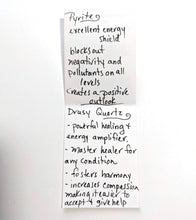 Pyrite
excellent energy
shield
blocks out
negativity and
pollutants on all
levels
creates a positive
outlook
Drusy Quartz
- powerful healing &
energy amplifier
- master healer for
any condition
- fosters harmony
- increases compassion
making it easier to
accept & give help